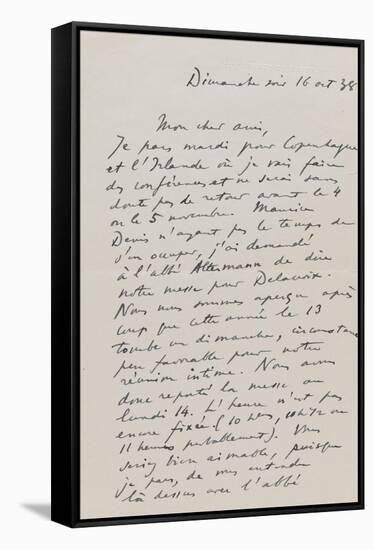 Dimanche soir 16 oct 38
Mon cher ami,
Je pars mardi pour Copenhague
et l'Irlande où je vais faire
des conférences et ne serai sans
doute pas de retour avant le 4
ou le 5 novembre. Maurice
Denis n'ayant pas le temps de
s'en occuper, j'ai demandé
à l'abbé Altermann de dire
notre messe pour Delacroix.
Nous nous sommes aperçu après
coup que cette année le 13
tombe un dimanche, circonstance
peu favorable pour notre
réunion intime. Nous avons
donc reporté la messe au
lundi 14. L'heure n'est pas
encore fixée (10 hres, 10h 1/2 ou
11 heures probablement). Vous
seriez bien aimable, puisque
je pars, de vous entendre
là dessus avec l'abbé